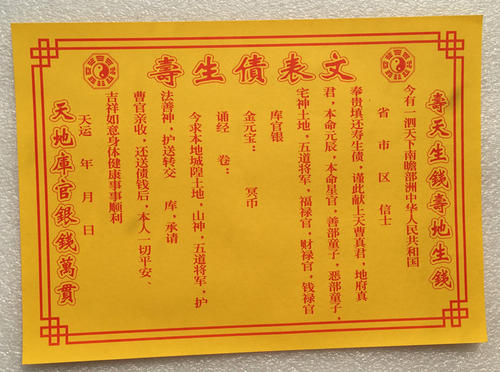 壽生債表文
壽天生錢壽地生錢
今有一泗天下南瞻部洲中华人民共和国
省 市 区 信士
奉贵填还寿生债，谨此献上天曹真君，地府真
君，本命元辰，本命星官，善部童子，恶部童子，
宅神土地，五道将军，福禄官，财禄官，钱禄官
库官银
金元宝： 冥币
诵经 卷：
今求本地城隍土地，山神，五道将军，护
法善神，护送转交 库，承请
曹官亲收，还送债钱后，本人一切平安、
吉祥如意身体健康事事顺利
天运 年 月 日
天地庫官銀錢萬貫